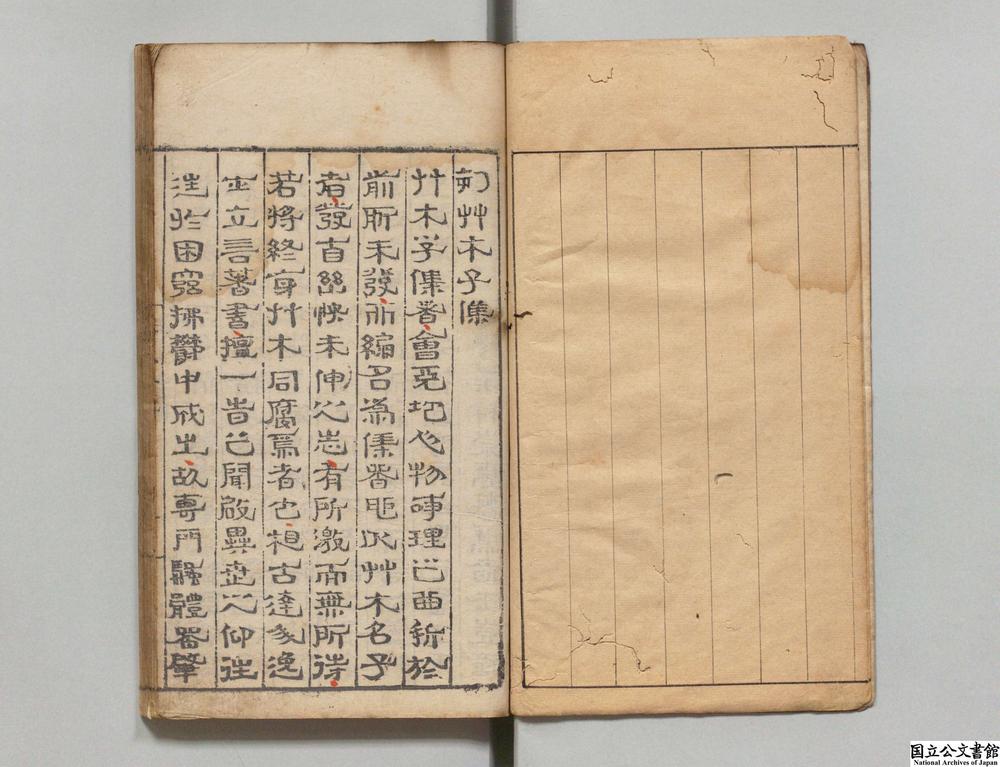 刻艸木子集
艸木子集者會天地人物事理之曲折於
前所未發而編名爲集者耶以艸木名子
者發百幽憤未伸之志有所激而無所待
若將終身艸木同腐焉者也想古達人逸
士立言著書擅一昔之聞啟異世之仰往
往於困窮拂鬱中成之故專門騷體器肇
国立公文書館
National Archives of Japan